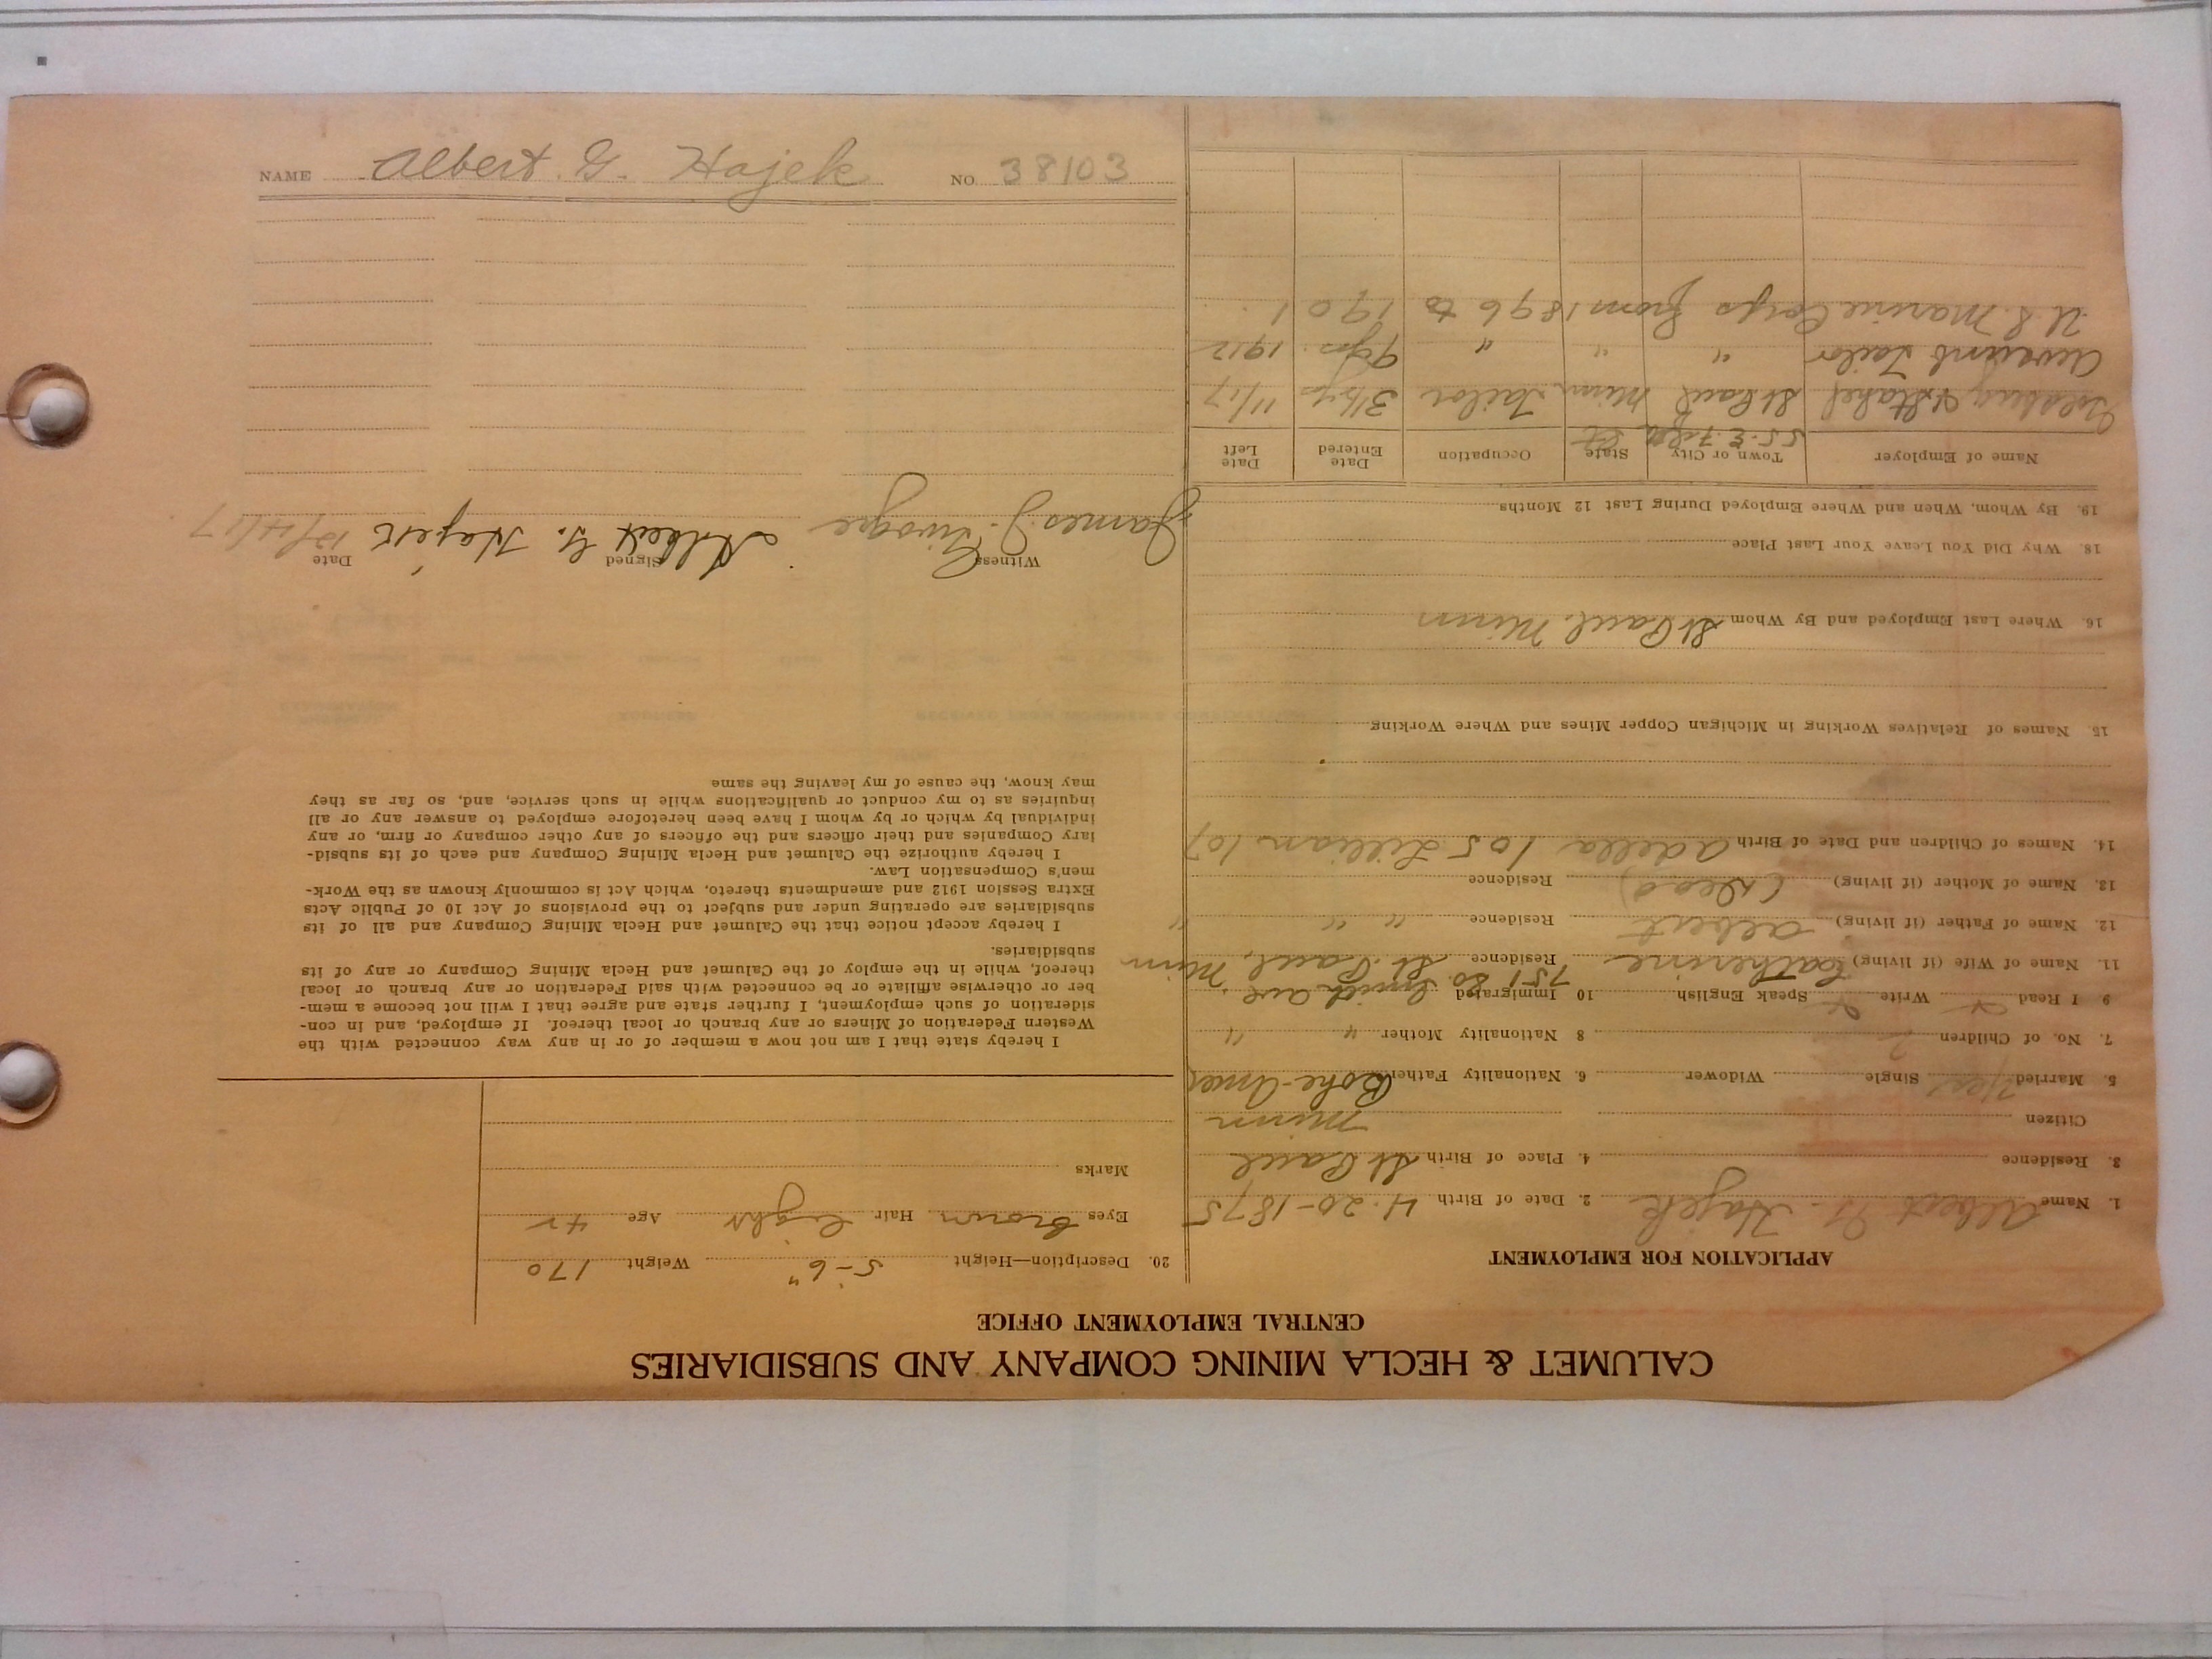 CALUMET & HECLA MINING COMPANY AND SUBSIDIARIES
CENTRAL EMPLOYMENT OFFICE
APPLICATION FOR EMPLOYMENT
1. Name Albert G. Hajek 2. Date of Birth 4-20-1875
3. Residence 4. Place of Birth St Paul
Citizen Minn
5. Married Yes Single Widower 6. Nationality Father Bohe-Amer
7. No. of Children 2 8 Nationality Mother " "
9 I Read Write Speak English 10 Immigrated
751 So. Smith ave.
11. Name of Wife (if living) Katherine Residence St. Paul, Minn
12. Name of Father (if living) Albert Residence " " "
13. Name of Mother (if living) (Dead) Residence
14. Names of Children and Date of Birth Adella 105 Lillian 107
15. Names of Relatives Working in Michigan Copper Mines and Where Working
16. Where Last Employed and By Whom St Paul, Minn
18. Why Did You Leave Your Last Place
19. By Whom, When and Where Employed During Last 12 Months
Name of Employer Town or City State Occupation Date Entered Date Left
55. E.
& Stahel St Paul Minn Tailor 3½ yrs 11/17
Tailor " " " 9 yrs. 1912
U.S. Marine Corps from 1896 to 1901
20. Description—Height 5-6" Weight 170
Eyes Brown Hair light Age 42
Marks
I hereby state that I am not now a member of or in any way connected with the
Western Federation of Miners or any branch or local thereof. If employed, and in con-
sideration of such employment, I further state and agree that I will not become a mem-
ber or otherwise affiliate or be connected with said Federation or any branch or local
thereof, while in the employ of the Calumet and Hecla Mining Company or any of its
subsidiaries.
I hereby accept notice that the Calumet and Hecla Mining Company and all of its
subsidiaries are operating under and subject to the provisions of Act 10 of Public Acts
Extra Session 1912 and amendments thereto, which Act is commonly known as the Work-
men's Compensation Law.
I hereby authorize the Calumet and Hecla Mining Company and each of its subsid-
iary Companies and their officers and the officers of any other company or firm, or any
individual by which or by whom I have been heretofore employed to answer any or all
inquiries as to my conduct or qualifications while in such service, and, so far as they
may know, the cause of my leaving the same
Witness Signed Date
James J. Albert G. Hajek 12/4/17
NAME Albert G. Hajek NO. 38103